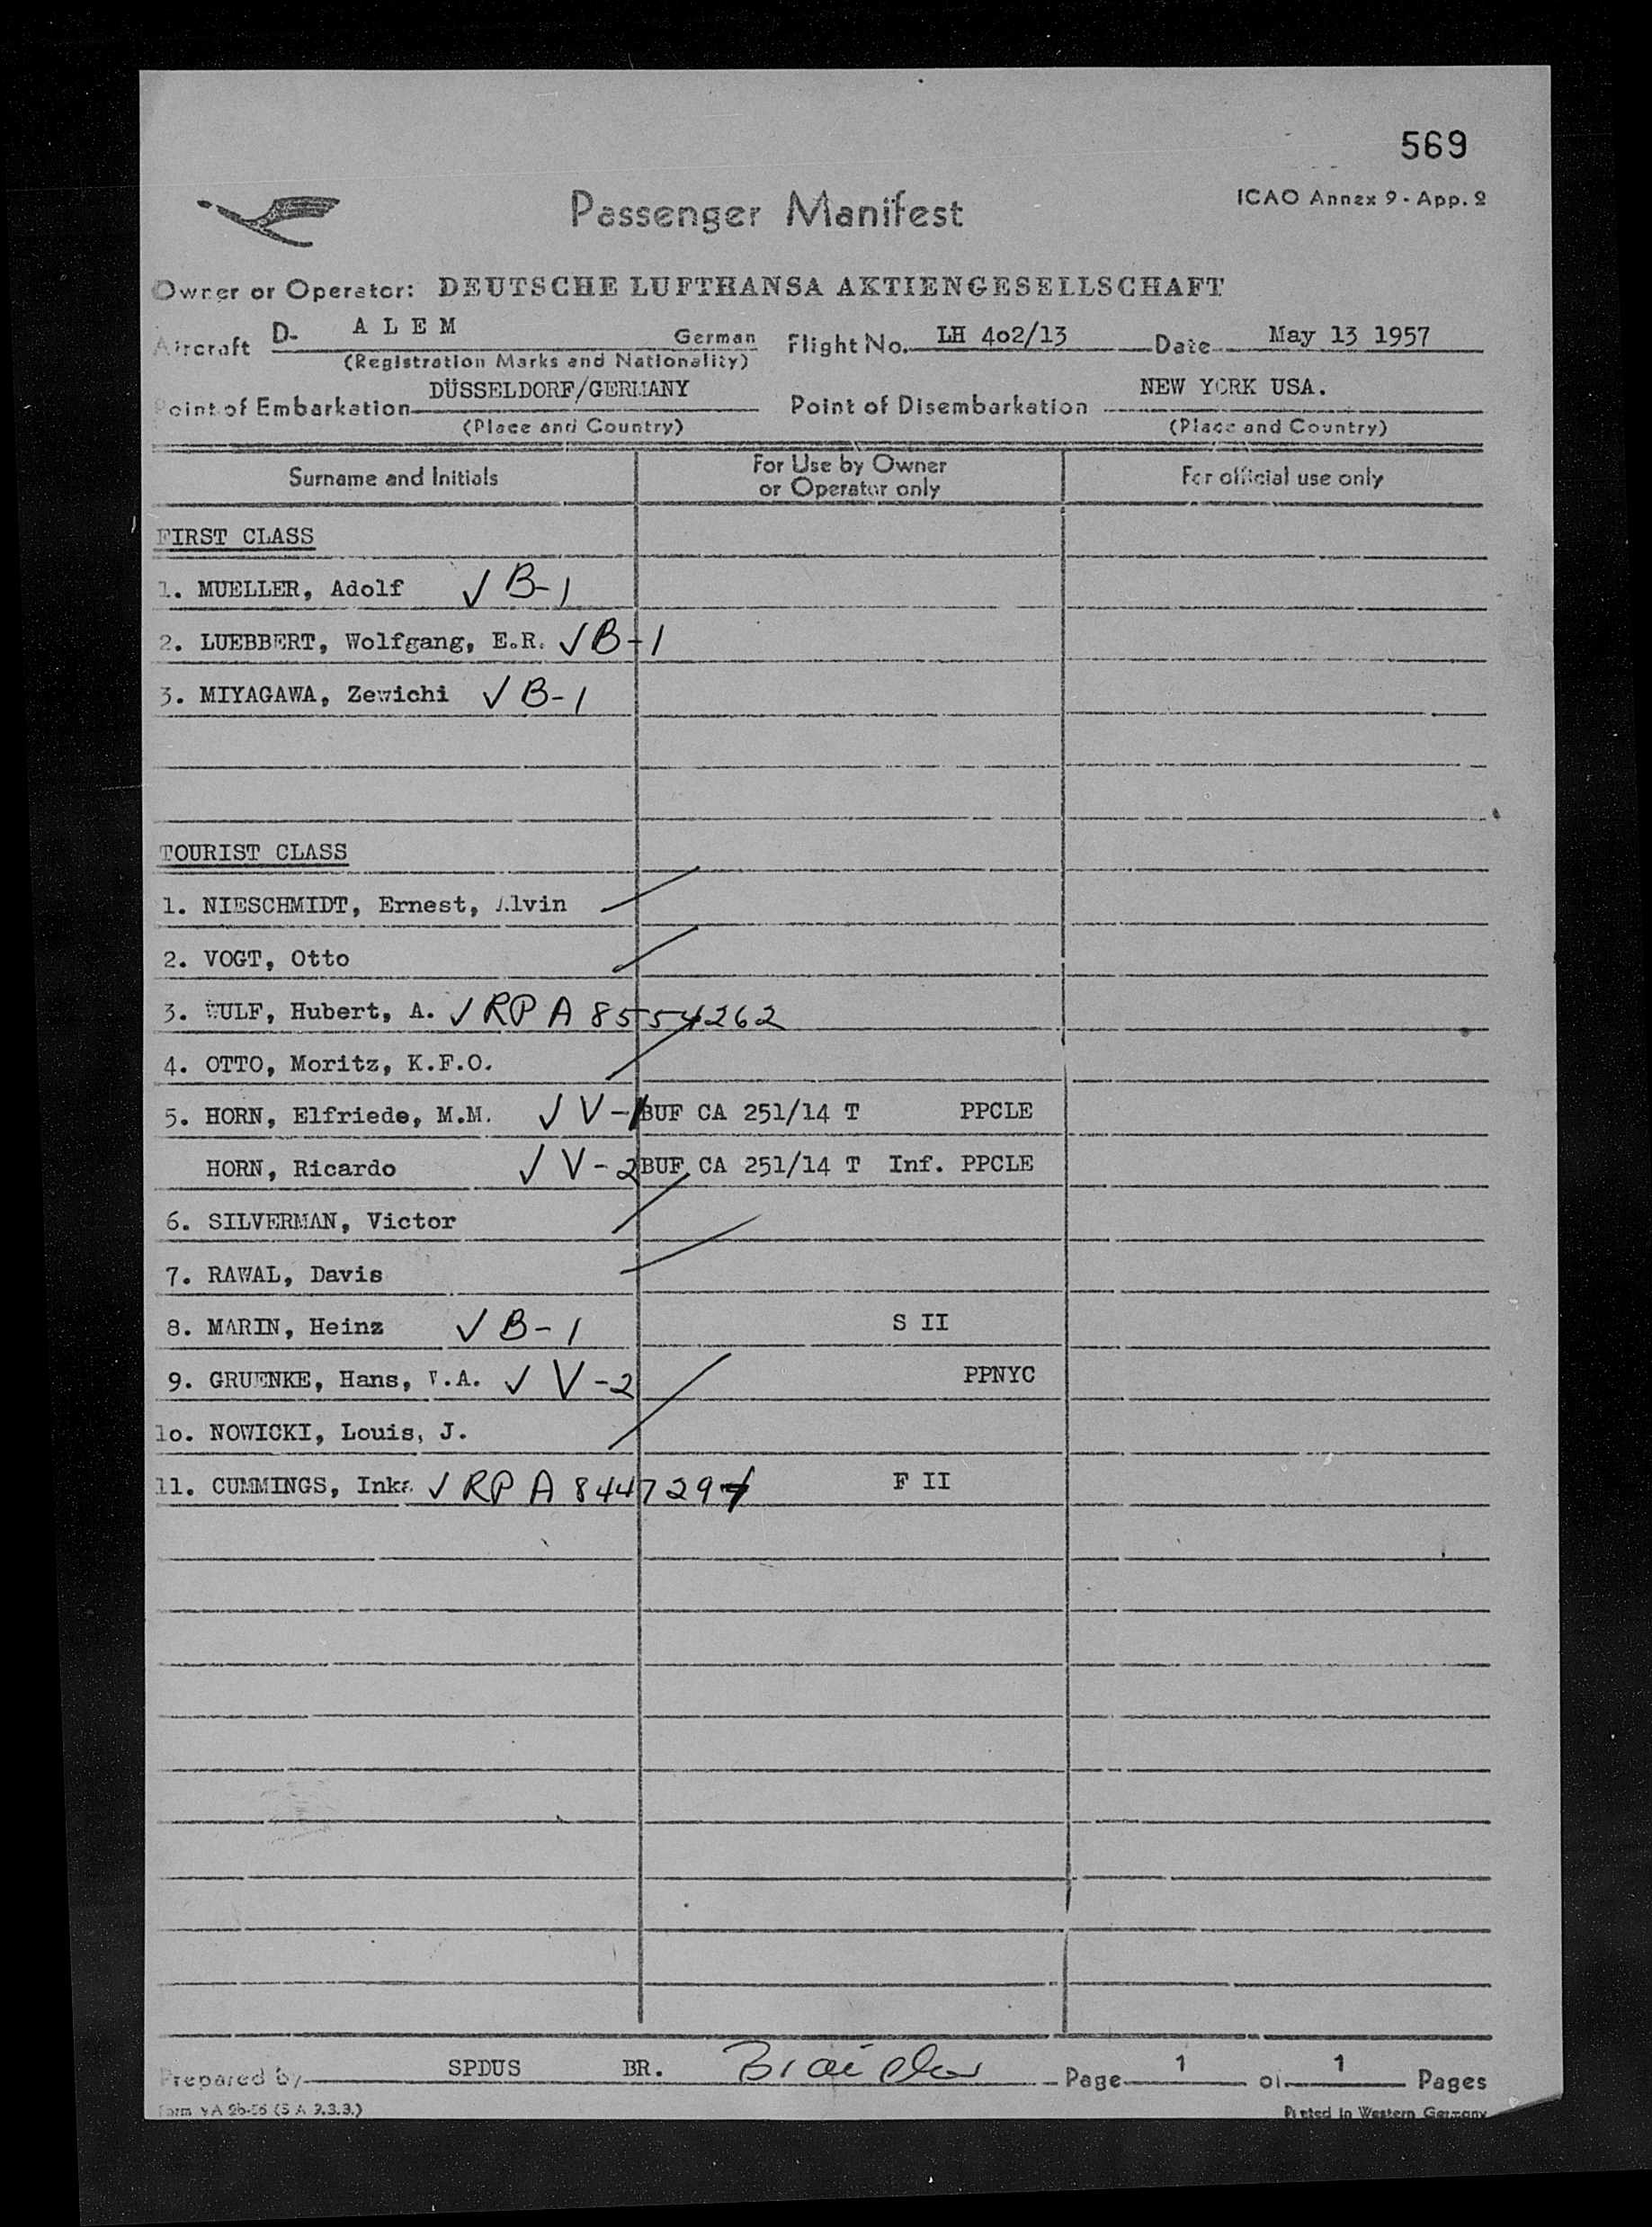 569
Passenger Manifest
ICAO Annex 9 - App. 2
Owner or Operator: DEUTSCHE LUFTHANSA AKTIENGESELLSCHAFT
Aircraft D- A L E M German Flight No. LH 4o2/13 Date May 13 1957
(Registration Marks and Nationality)
Point of Embarkation DÜSSELDORF/GERMANY Point of Disembarkation NEW YORK USA.
(Place and Country) (Place and Country)
Surname and Initials For Use by Owner or Operator only For official use only
FIRST CLASS
1. MUELLER, Adolf ✓ B-1
2. LUEBBERT, Wolfgang, E.R. ✓ B-1
3. MIYAGAWA, Zewichi ✓ B-1
TOURIST CLASS
1. NIESCHMIDT, Ernest, Alvin
2. VOGT, Otto
3. WULF, Hubert, A. ✓ RP A 8554262
4. OTTO, Moritz, K.F.O.
5. HORN, Elfriede, M.M. ✓ V-1 BUF CA 251/14 T PPCLE
HORN, Ricardo ✓ V-2 BUF CA 251/14 T Inf. PPCLE
6. SILVERMAN, Victor
7. RAWAL, Davis
8. MARIN, Heinz ✓ B-1 S II
9. GRUENKE, Hans, W.A. ✓ V-2 PPNYC
1o. NOWICKI, Louis, J.
11. CUMMINGS, Inka ✓ RP A 844729 F II
Prepared by SPDUS BR. Page 1 of 1 Pages
Form VA 2b-56 (S A 9.3.3.) Printed in Western Germany